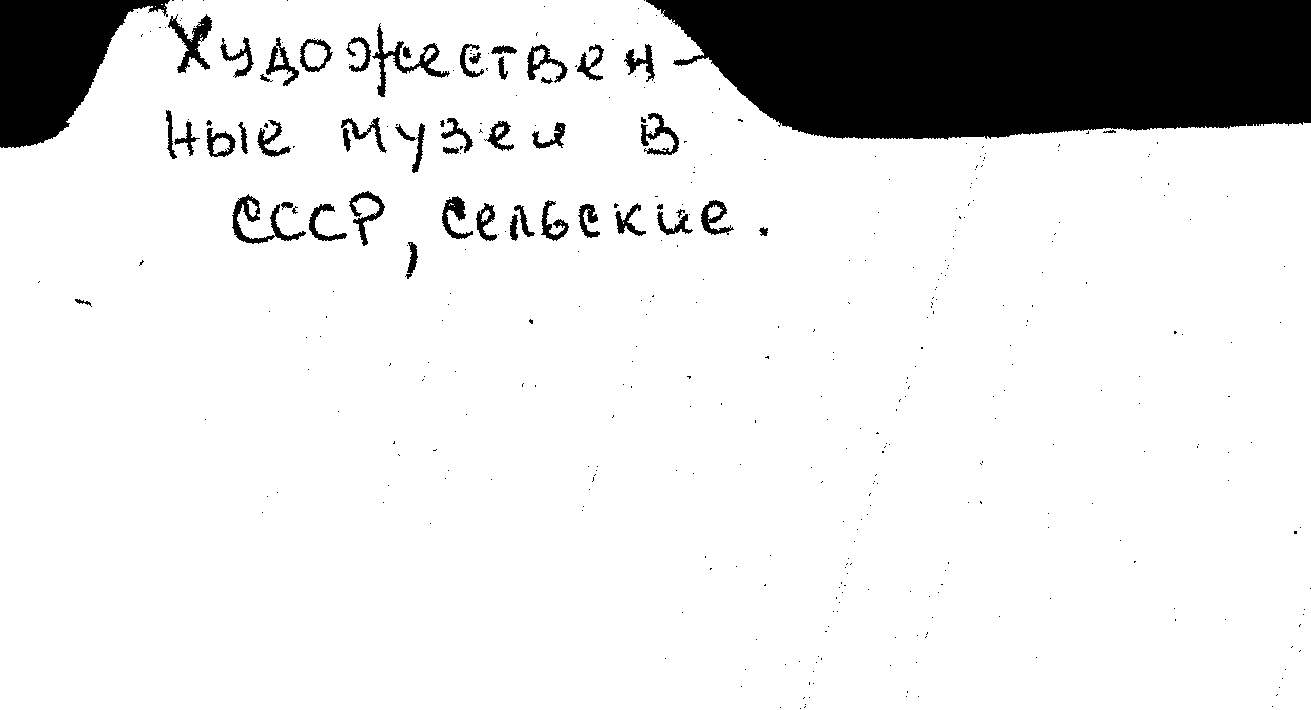 Художествен-
ные музеи в
СССР, сельские.